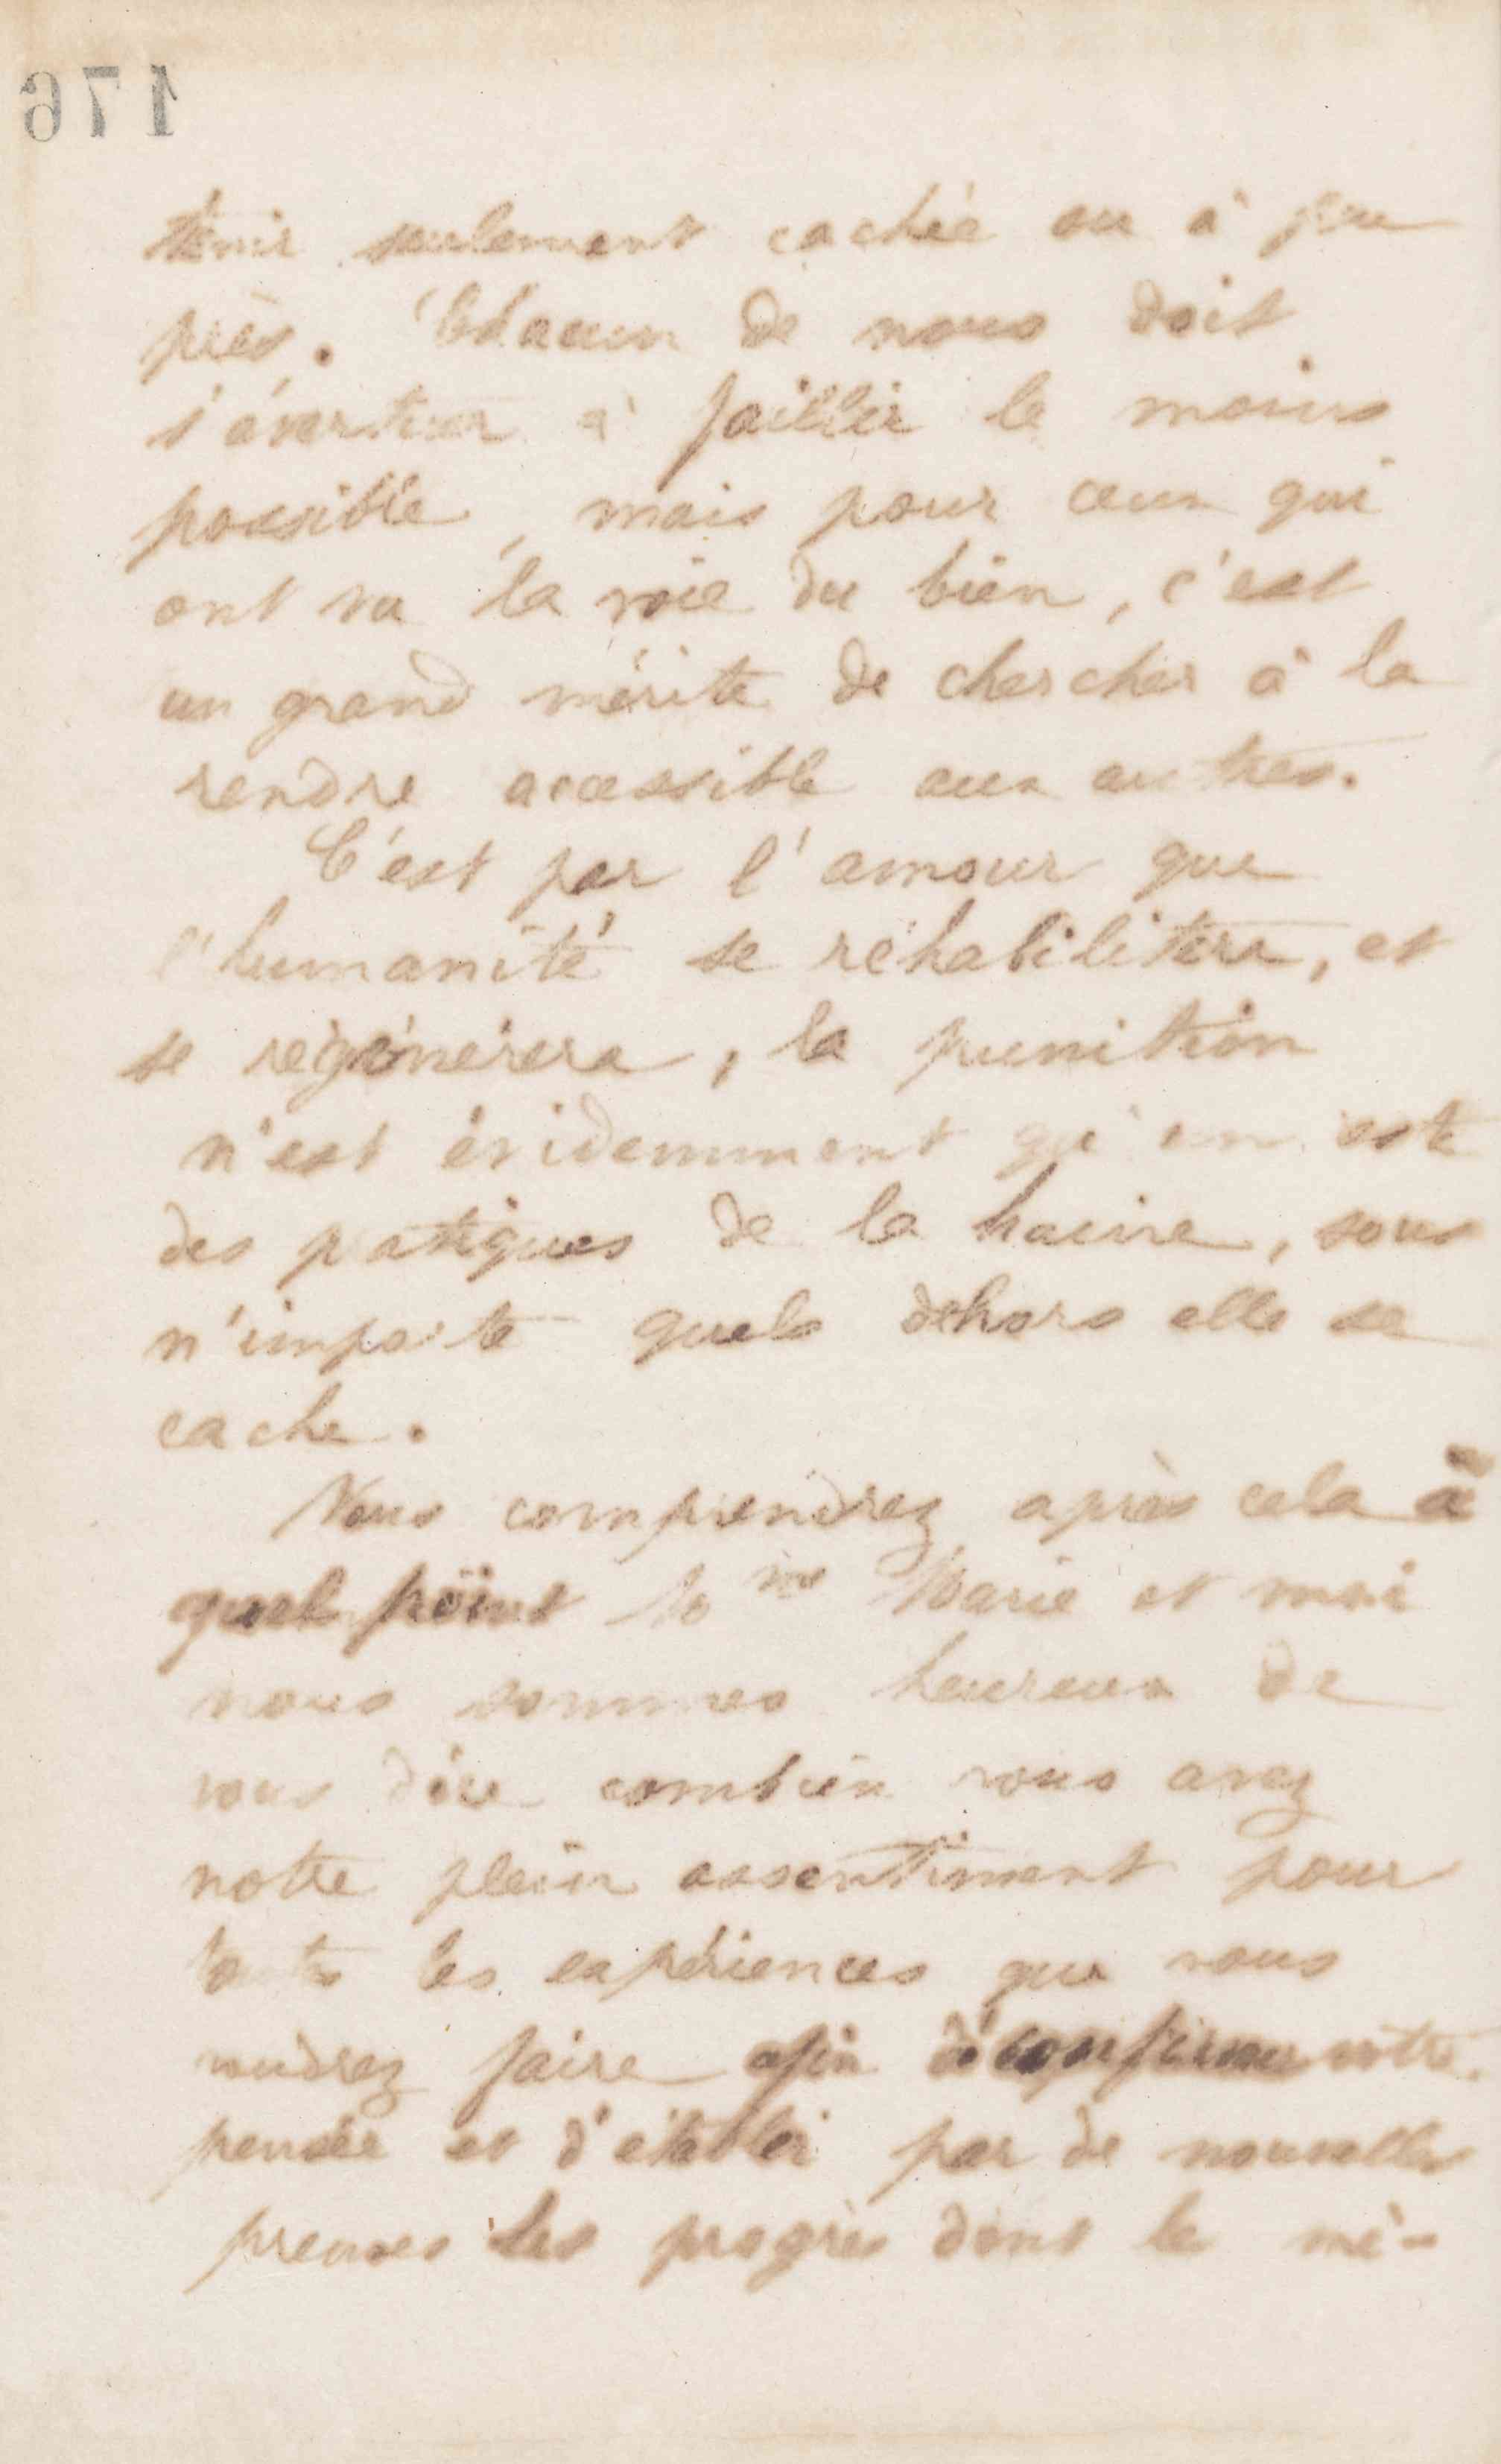 176
tenir seulement cachée ou à peu
près. Chacun de nous doit
s'évertuer à faillir le moins
possible, mais pour ceux qui
ont vu la voie du bien, c'est
un grand mérite de chercher à la
rendre accessible aux autres.
C'est par l'amour que
l'humanité se réhabilitera, et
se régénérera, la punition
n'est évidemment qu'un acte
des pratiques de la haine, sous
n'importe quels dehors elle se
cache.
Vous comprendrez après cela à
quel point Mme Marie et moi
nous sommes heureux de
vous dire combien vous avez
notre plein assentiment pour
toutes les expériences que vous
voudrez faire afin de confirmer votre
pensée et d'établir par de nouvelles
preuves les progrès dont le mé-